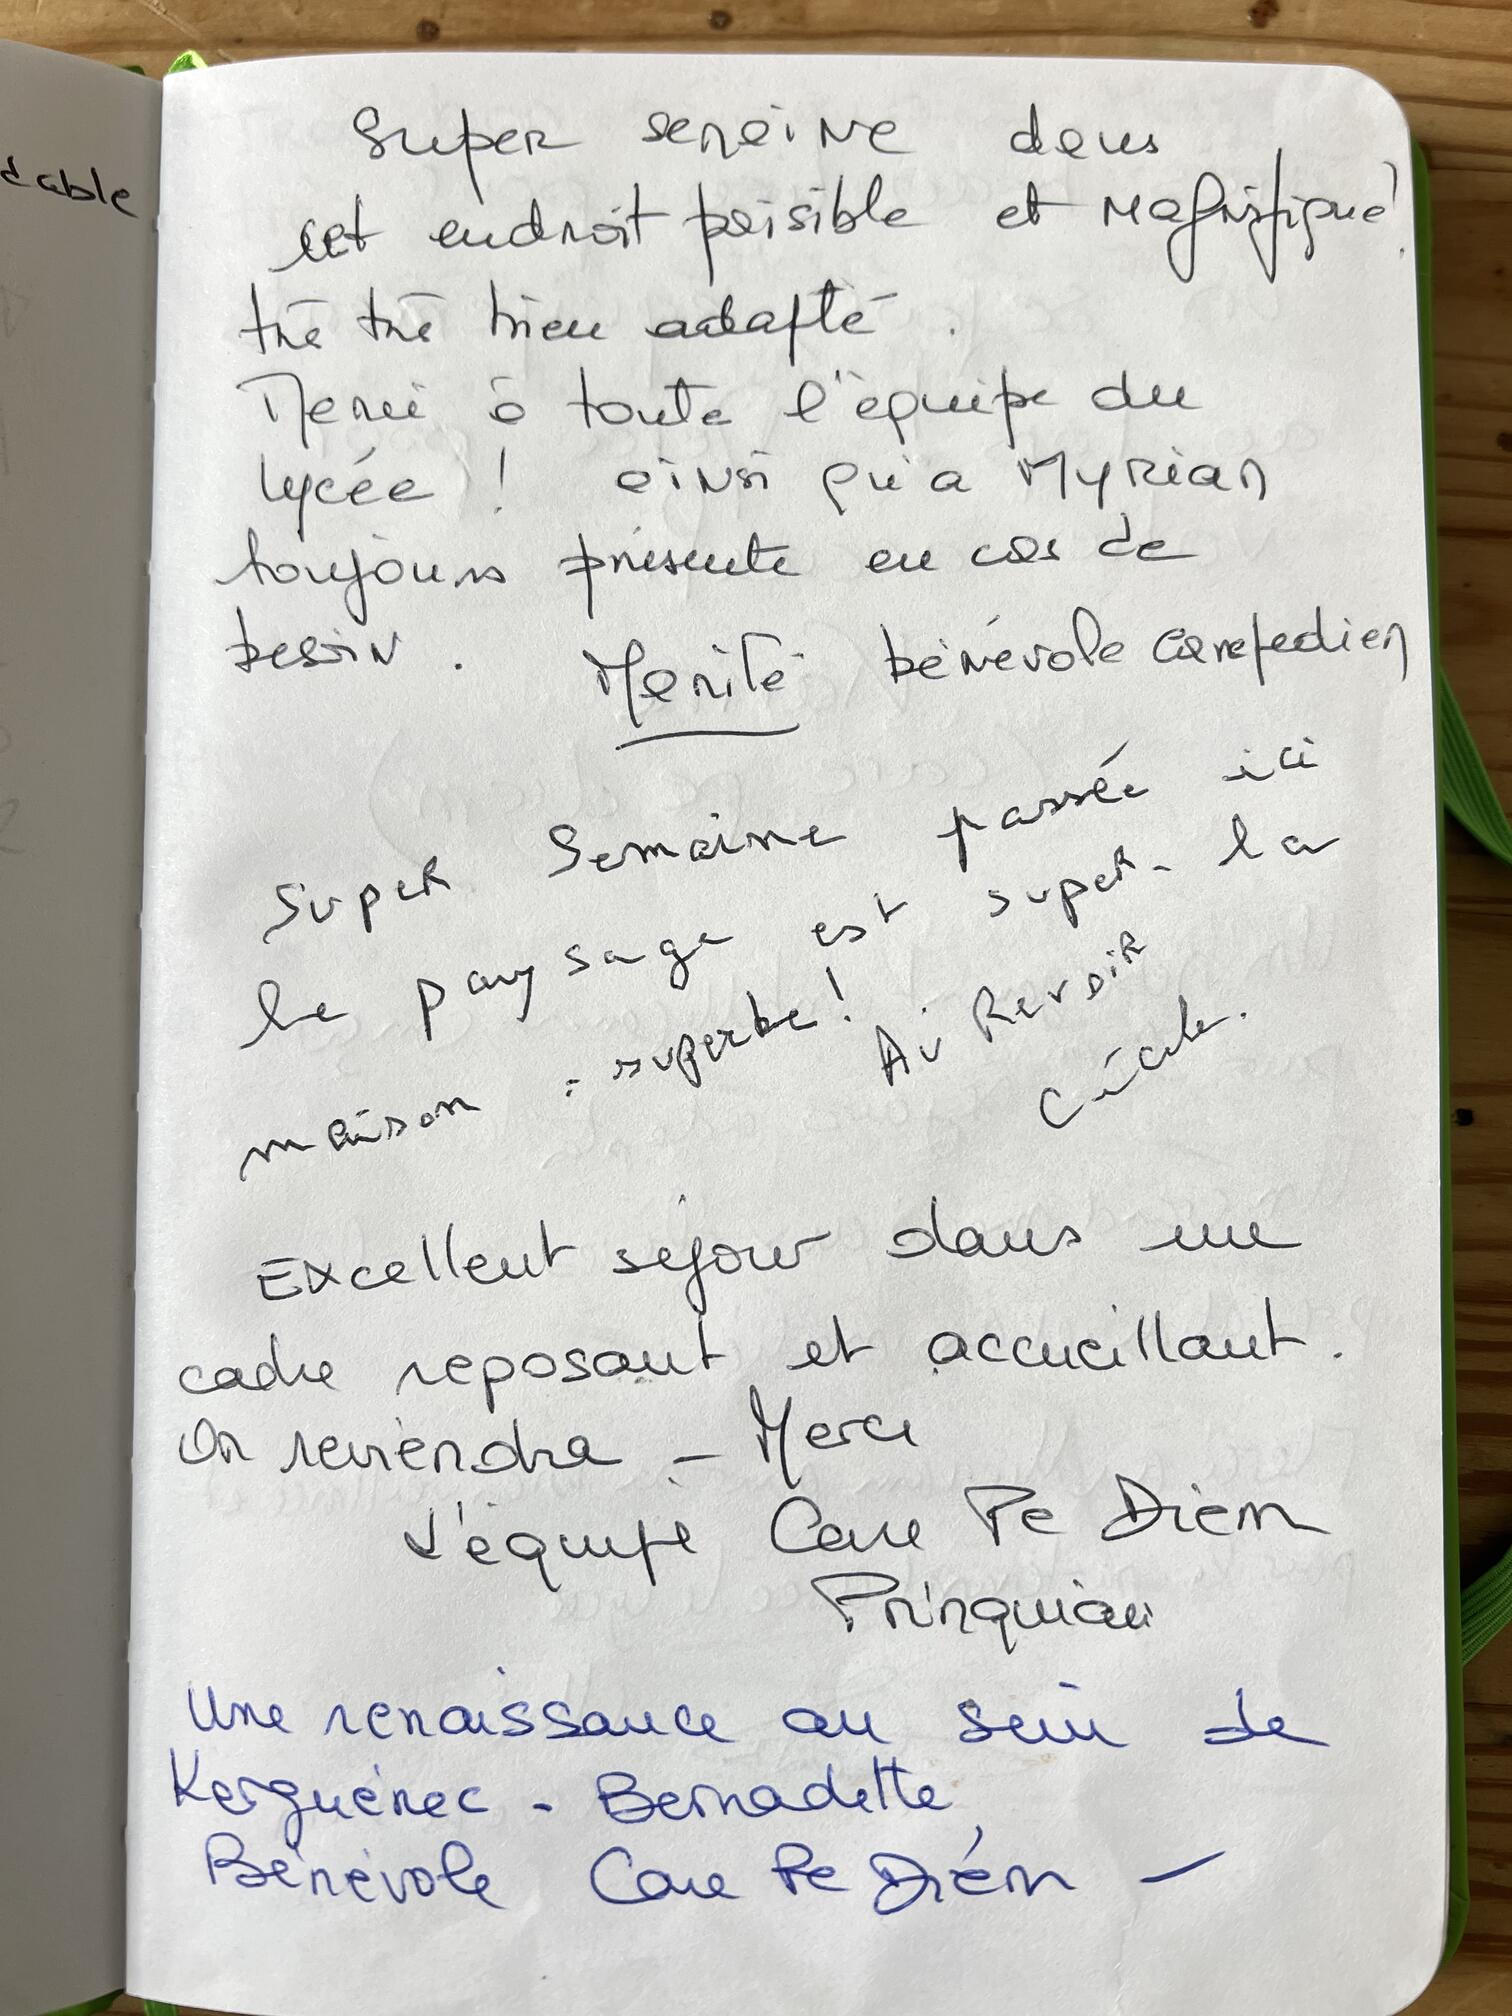 dable
Super semaine dans
cet endroit paisible et magnifique !
très très bien adapté.
Merci à toute l'équipe du
lycée ! ainsi qu'a Myriam
toujours présente en cas de
besoin. Marité bénévole carepedien
Super Semaine passée ici
le paysage est super - la
maison : superbe ! Au Revoir
Cécile.
Excellent séjour dans un
cadre reposant et accueillant.
On reviendra - Merci
L'équipe Care Pe Diem
Prinquiau
Une renaissance au sein de
Kerguénec - Bernadette,
Bénévole Care Pe Diém -